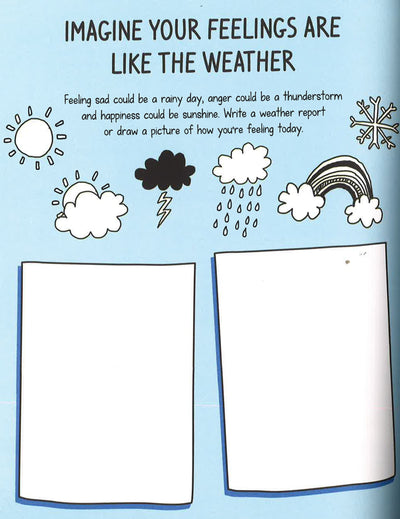 IMAGINE YOUR FEELINGS ARE
LIKE THE WEATHER
Feeling sad could be a rainy day, anger could be a thunderstorm
and happiness could be sunshine. Write a weather report
or draw a picture of how you're feeling today.